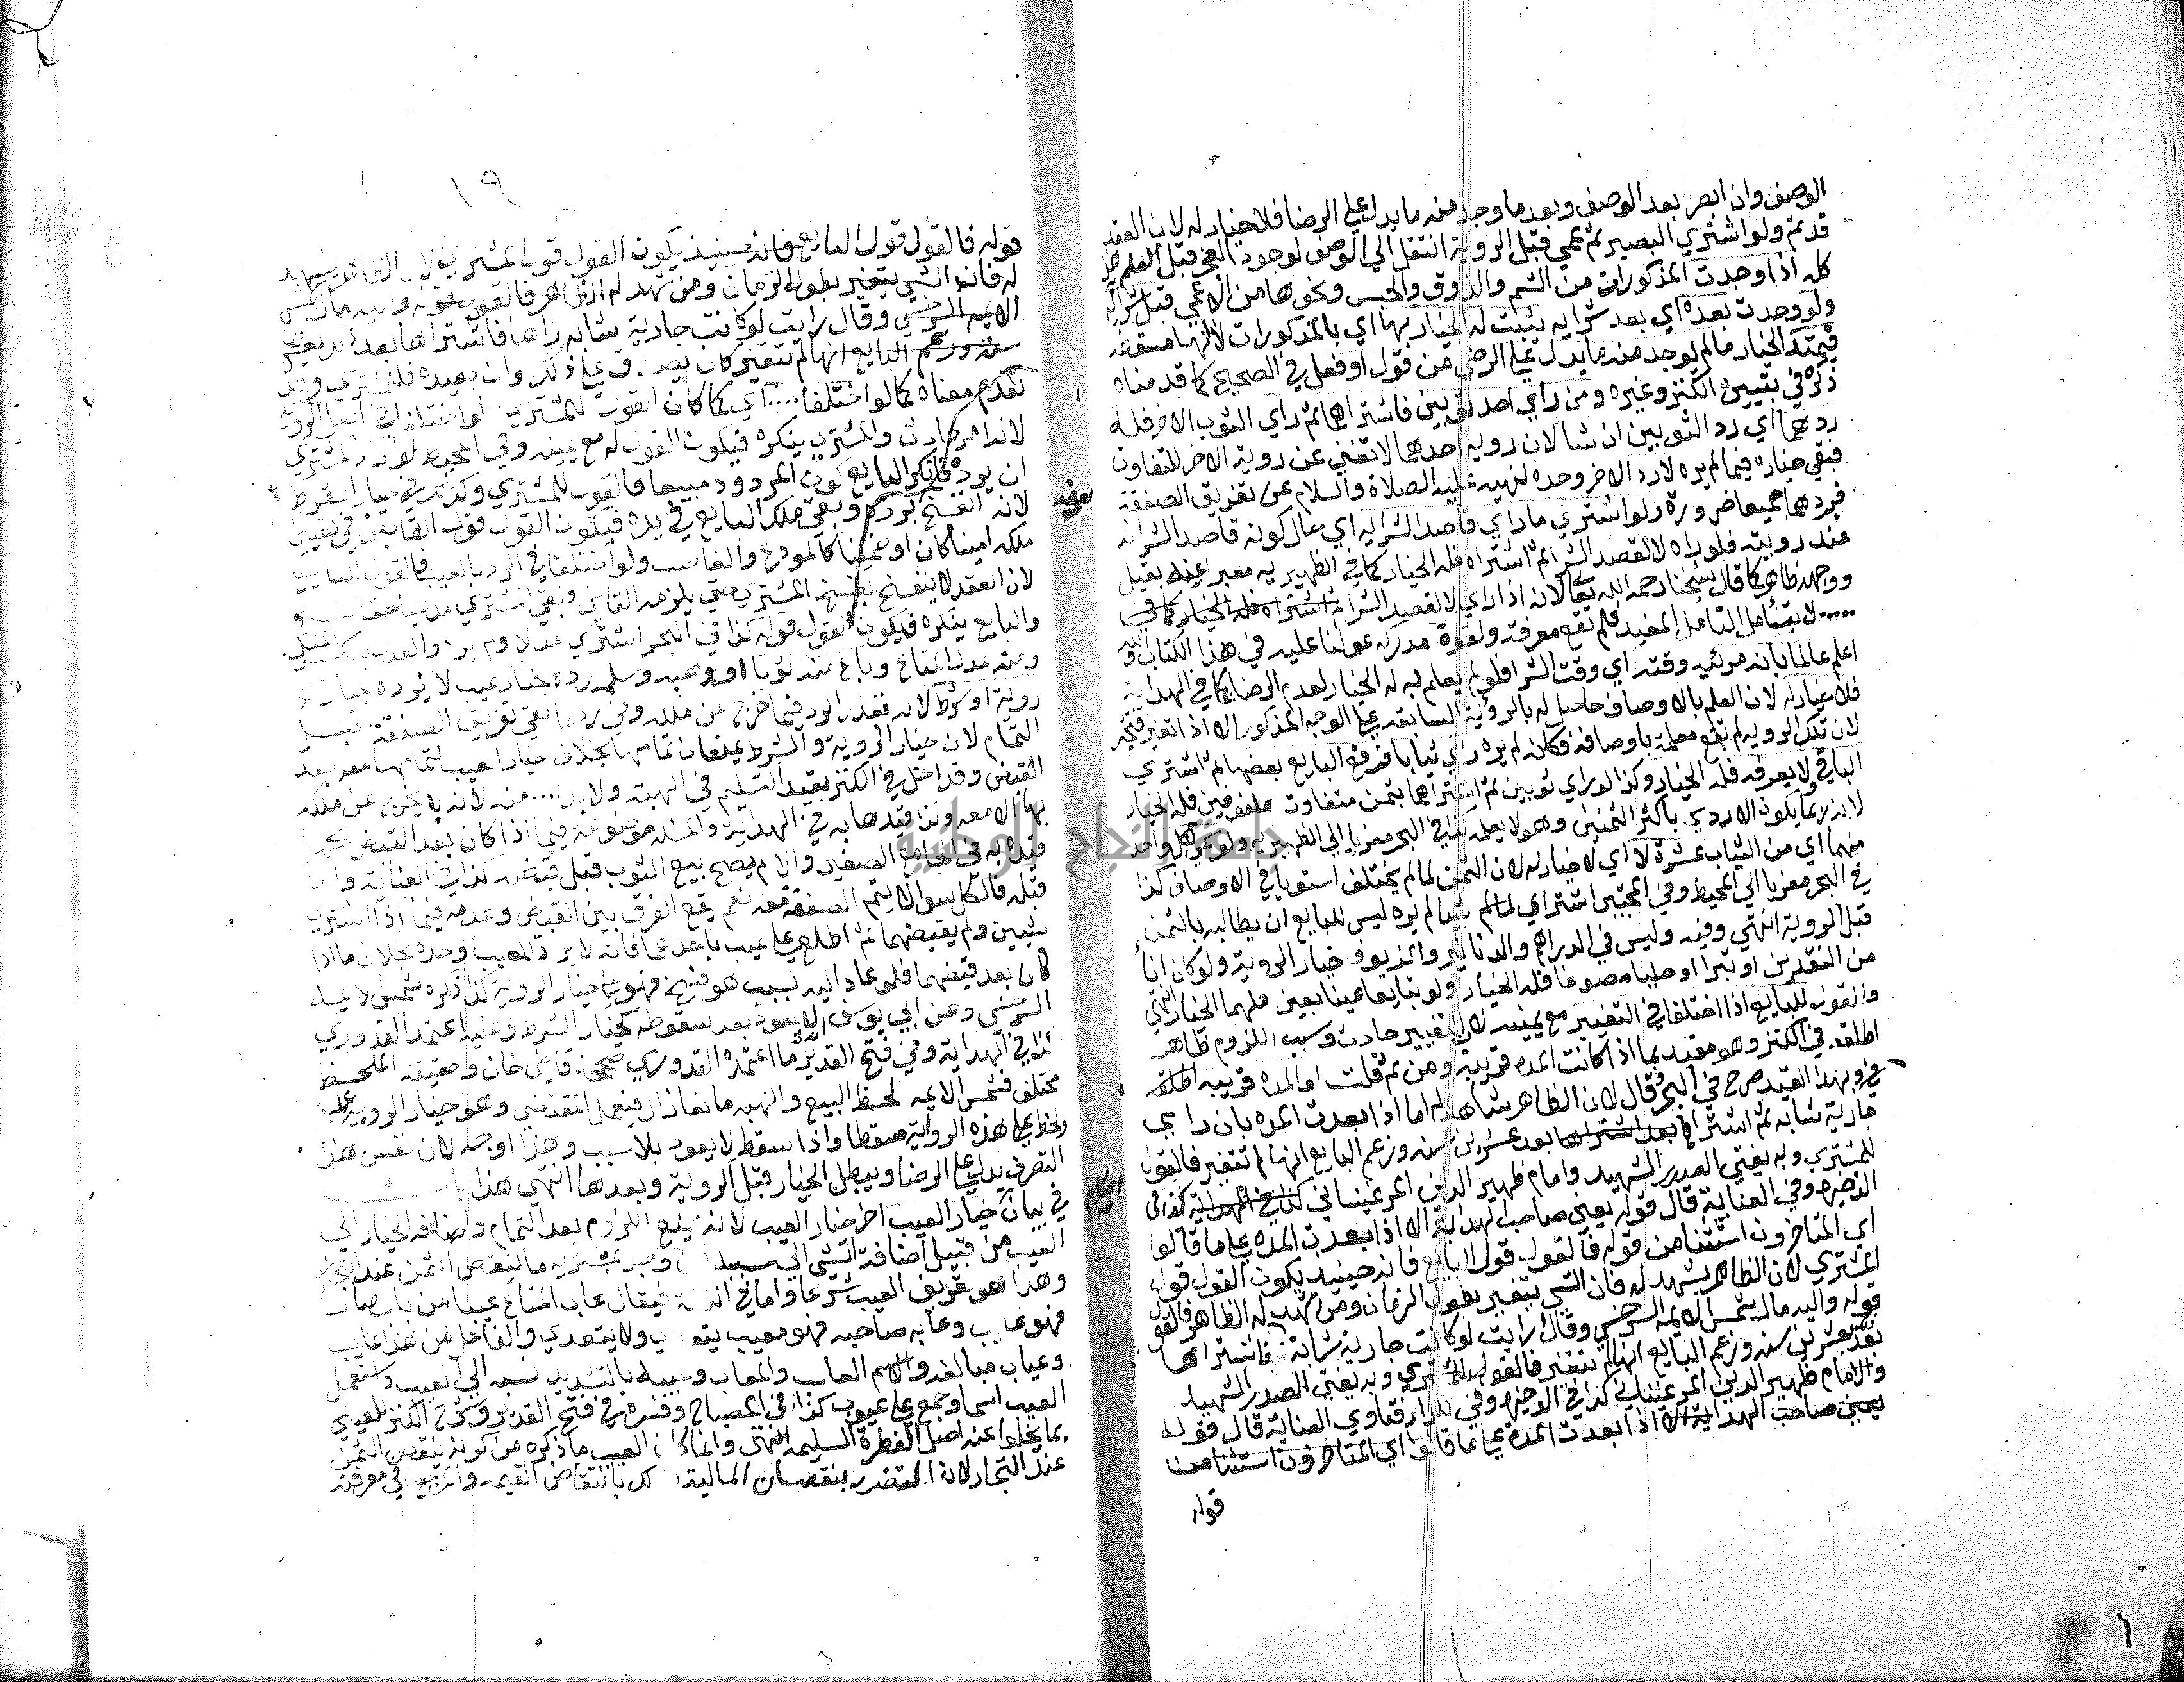 الوصف وان ابصر بعد الوصف وبعد ما وجد منه ما يدل علي الرضا فلا خيار له لان العقد
قد تم ولو اشتري البصير ثم عمي قبل الروية انتقل الي الوصف لوجود العجز قبل العلم هذا
كله اذا وجدت المذكورات من الشم والذوق والجس ونحوها من الاعمي قبل شرايه
ولو وجدت بعده اي بعد شرايه يثبت له الخيار بها اي بالمذكورات لا انها مسقطه
فيمتد الخيار ما لم يوجد منه ما يدل علي الرضي من قول او فعل في الصحيح كما قدمناه
ذكره في تبيين الكنز وغيره ومن راي احد ثوبين فاشتراهما ثم راي الثوب الاخر فله
ردهما اي رد الثوبين ان شا لان روية احدهما لا تغني عن روية الاخر للتفاوت
فبقي خياره فيما لم يره لا رد الاخر وحده لنهيه عليه الصلاة والسلام عن تفريق الصفقة
فيردهما جميعا ضرورة ولو اشتري ما راي قاصدا لشرايه اي حال كونه قاصد الشرايه
عند رويته فلو راه لا لقصد الشرا ثم اشتراه فله الخيار كما في الظهيريه معبرا عنه بقيل
ووجهه ظاهر كما قال شيخنا رحمه الله تعالي لانه اذا راي لا لقصد الشرا ثم اشتراه فله الخيار كما في
لا يتأمل التامل المفيد فلم تقع معرفة ولقوة مدركه عولنا عليه في هذا الكتاب
اعلم عالما بانه مرئيه وقته اي وقت الشرا فلو لم يعلم به له الخيار لعدم الرضا كما في الهداية
فلا خيار له لان العلم بالاوصاف حاصل له بالروية السابقه علي الوجه المذكور الا اذا تغير فيخير
لان تلك الروية لم تقع معلمة باوصافه فكانه لم يره راي ثيابا فرفع البايع بعضها ثم اشتري
الباقي ولا يعرفه فله الخيار وكذا لو راي ثوبين ثم اشتراهما بثمن متفاوت ملفوفين فله الخيار
لانه ربما يكون الاردي باكثر الثمنين وهو لا يعلم كذا في البحر معزيا الي الظهيرية ولو سمي لكل واحد
منهما اي من الثياب عشرة لا اي لا خيار له لان الثمن لما لم يختلف استويا في الاوصاف كذا
في البحر معزيا الي المحيط وفي المجتبي اشتراي لما لم شيا لم يره ليس للبايع ان يطالبه بالثمن
قبل الروية انتهي وفيه وليس في الدراهم والدنانير والديون خيار الروية ولو كان انا
من النقدين او تبرا او حليا مصوغا فله الخيار ولو تبايعا عينا بعين فلهما الخيار انتهي
والقول للبايع اذا اختلفا في التغيير مع يمينه لان التغيير حادث وسبب اللزوم ظاهر
اطلقه في الكنز وهو مقيد بما اذا كانت المدة قريبة ومن ثم قلت او المدة قريبه اطلقه
وبهذا القيد صرح في البحر قال لان الظاهر شاهد له اما اذا بعدت المده بان راي
جارية شابه ثم اشتراها بعد اشتراها بعد عشرين سنه وزعم البايع انها لم تتغير فالقول
للمشتري وبه يفتي الصدر الشهيد وامام ظهير الدين المرغيناني كذا في الهداية كذا في
الذخيرة وفي العناية قال قوله يعني صاحب الهداية الا اذا بعدت المده علي ما قالوا
اي المتاخرون استثنا من قوله فالقول قول البايع فانه حينيذ يكون القول قول
المشتري لان الظاهر يشهد له فان الشي يتغير بطول الزمان ومن شهد له الظاهر فالقول
قوله واليه مال شمس الايمه السرخسي وقال ارايت لو كانت جارية شابة فاشتراها
بعد عشرين سنه وزعم البايع انها لم تتغير فالقول للمشتري وبه يفتي الصدر الشهيد
والامام ظهير الدين المرغيناني كذا في الذخيره وفي فتاوي العناية قال قوله
يعني صاحب الهداية الا اذا بعدت المده علي ما قالوا اي المتاخرون استثنا من
قوله
بعضه
احكام
٩١
قوله فالقول قول البايع فانه حينيذ يكون القول قول المشتري لان الظاهر يشهد
له فانه الشي يتغير بطول الزمان ومن شهد له الظاهر فالقول قوله واليه مال شمس
الايمه السرخسي وقال ارايت لو كانت جارية شابه راها فاشتراها بعد
سنه وزعم البايع انها لم تتغير كان يصدق علي ذلك وان بعيده فللمشتري وقد
تقدم معناه كما لو اختلفا اي كما كان القول للمشتري لو اختلفا في اصل الروية
لانه امر حادث والمشتري ينكره فيكون القول له مع يمينه وفي المحيط لو اراد المشتري
ان يرده فانكر البايع كون المردود مبيعا فالقول للمشتري وكذلك في خيار الشرط
لانه انفسخ برده وبقي ملك البايع في يده فيكون القول قول القابض في تعيين
ملكه امينا كان او ضمينا كالمودع والغاصب ولو اختلفا في الرد بالعيب فالقول للبايع
لان العقد لا ينفسخ بفسخ المشتري حتي يلزمه القاضي وبقي المشتري مدعيا حق الفسخ
والبايع ينكره فيكون القول قوله كذا في البحر اشتري عدلا ولم يره والعدل
وعنه عدل المتاع وباع منه ثوبا او وهبه وسلمه رده بخيار عيب لا يرده بخيار
روية او شرط لانه تعذر الرد فيما خرج عن ملكه وفي رد ما بقي تفريق الصفقة قبل
التمام لان خيار الروية والشرط يمنعان تمامها بخلاف خيار العيب لتمامها معه بعد
القبض وقد اخل في الكنز بقيد التسليم في الهبة ولا بد منه لانه لا يخرج عن ملكه
بها الا معه ولذا قيدها به في الهداية والمسله موضوعة فيما اذا كان بعد القبض
قيده به في الجامع الصغير والا لم يصح بيع الثوب قبل قبضه كذا في العناية واما
قبله فالكل سوا لا يتم الصفقة معه نعم يقع الفرق بين القبض وعدمه فيما اذا اشتري
شيين ولم يقبضهما ثم اطلع علي عيب باحدهما فانه لا يرد المعيب وحده بخلاف ما اذا
كان بعد قبضهما فلو عاد اليه بسبب هو فسخ فهو علي خيار الروية كذا ذكره شمس الايمه
السرخسي وعن ابي يوسف انه لا يعود بعد سقوطه كخيار الشرط وعليه اعتمد القدوري
كذا في الهداية وفي فتح القدير ما اعتمده القدوري صححه قاضي خان وحقيقه الملحظ
مختلف فشمس الايمه لحظ البيع والهبه مانعا زال فيعمل المقتضي وهو خيار الروية عمله
ولحظ علي هذه الرواية مسقطا واذا سقط لا يعود بلا سبب وهذا اوجه لان نفس هذا
التصرف يدل علي الرضا ويبطل الخيار قبل الروية وبعدها انتهي هذا باب
في بيان خيار العيب اخر خيار العيب لانه يمنع اللزوم بعد التمام واضافه الخيار الي
العيب من قبيل اضافة الشي الي سببه وجد بمشريه ما ينقص الثمن عند التجار
وهذا هو تعريف العيب شرعا واما في اللغة فيقال عاب المتاع عيبا من باب
فهو عايب وعابه صاحبه فهو معيب يتعدي ولا يتعدي والفاعل من هذا عايب
وعياب مبالغه والاسم العاب والمعاب وعيبه بالتشديد نسبه الي العيب واستعمل
العيب اسما وجمع علي عيوب كذا في المصباح وفسره في فتح القدير وشرح الكنز للعيني
بما يخلو عنه اصل الفطرة السليمه انتهي وانما كان العيب ما ذكره من كونه ينقص الثمن
عند التجار لان التضرر بنقصان المالية وذلك بانتقاص القيمه والمرجع في معرفته
جامعة النجاح الوطنية